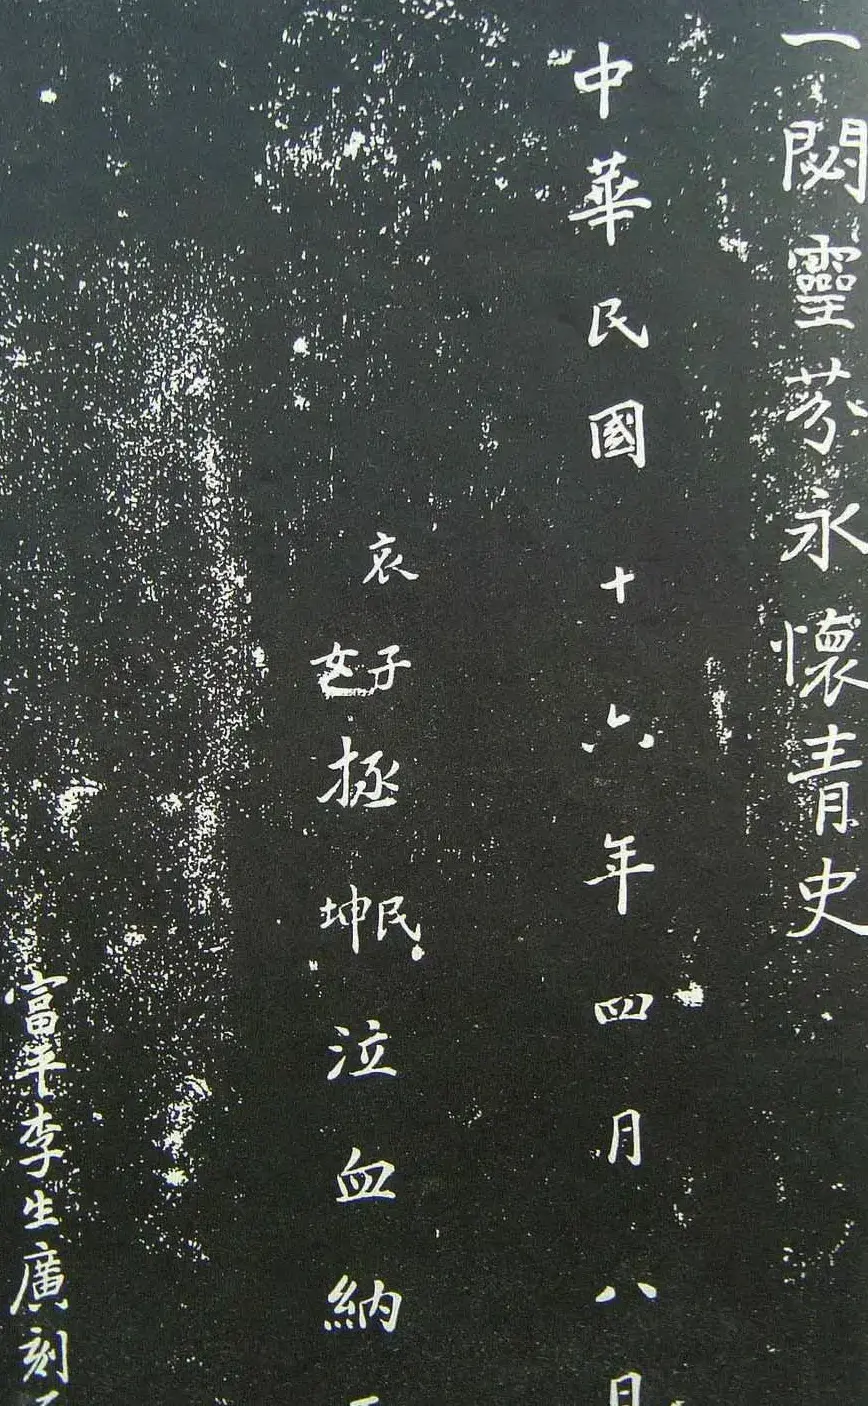 一閟靈芬永懷青史
中華民國十六年四月八日
哀子女拯民坤泣血納
富平李生廣刻